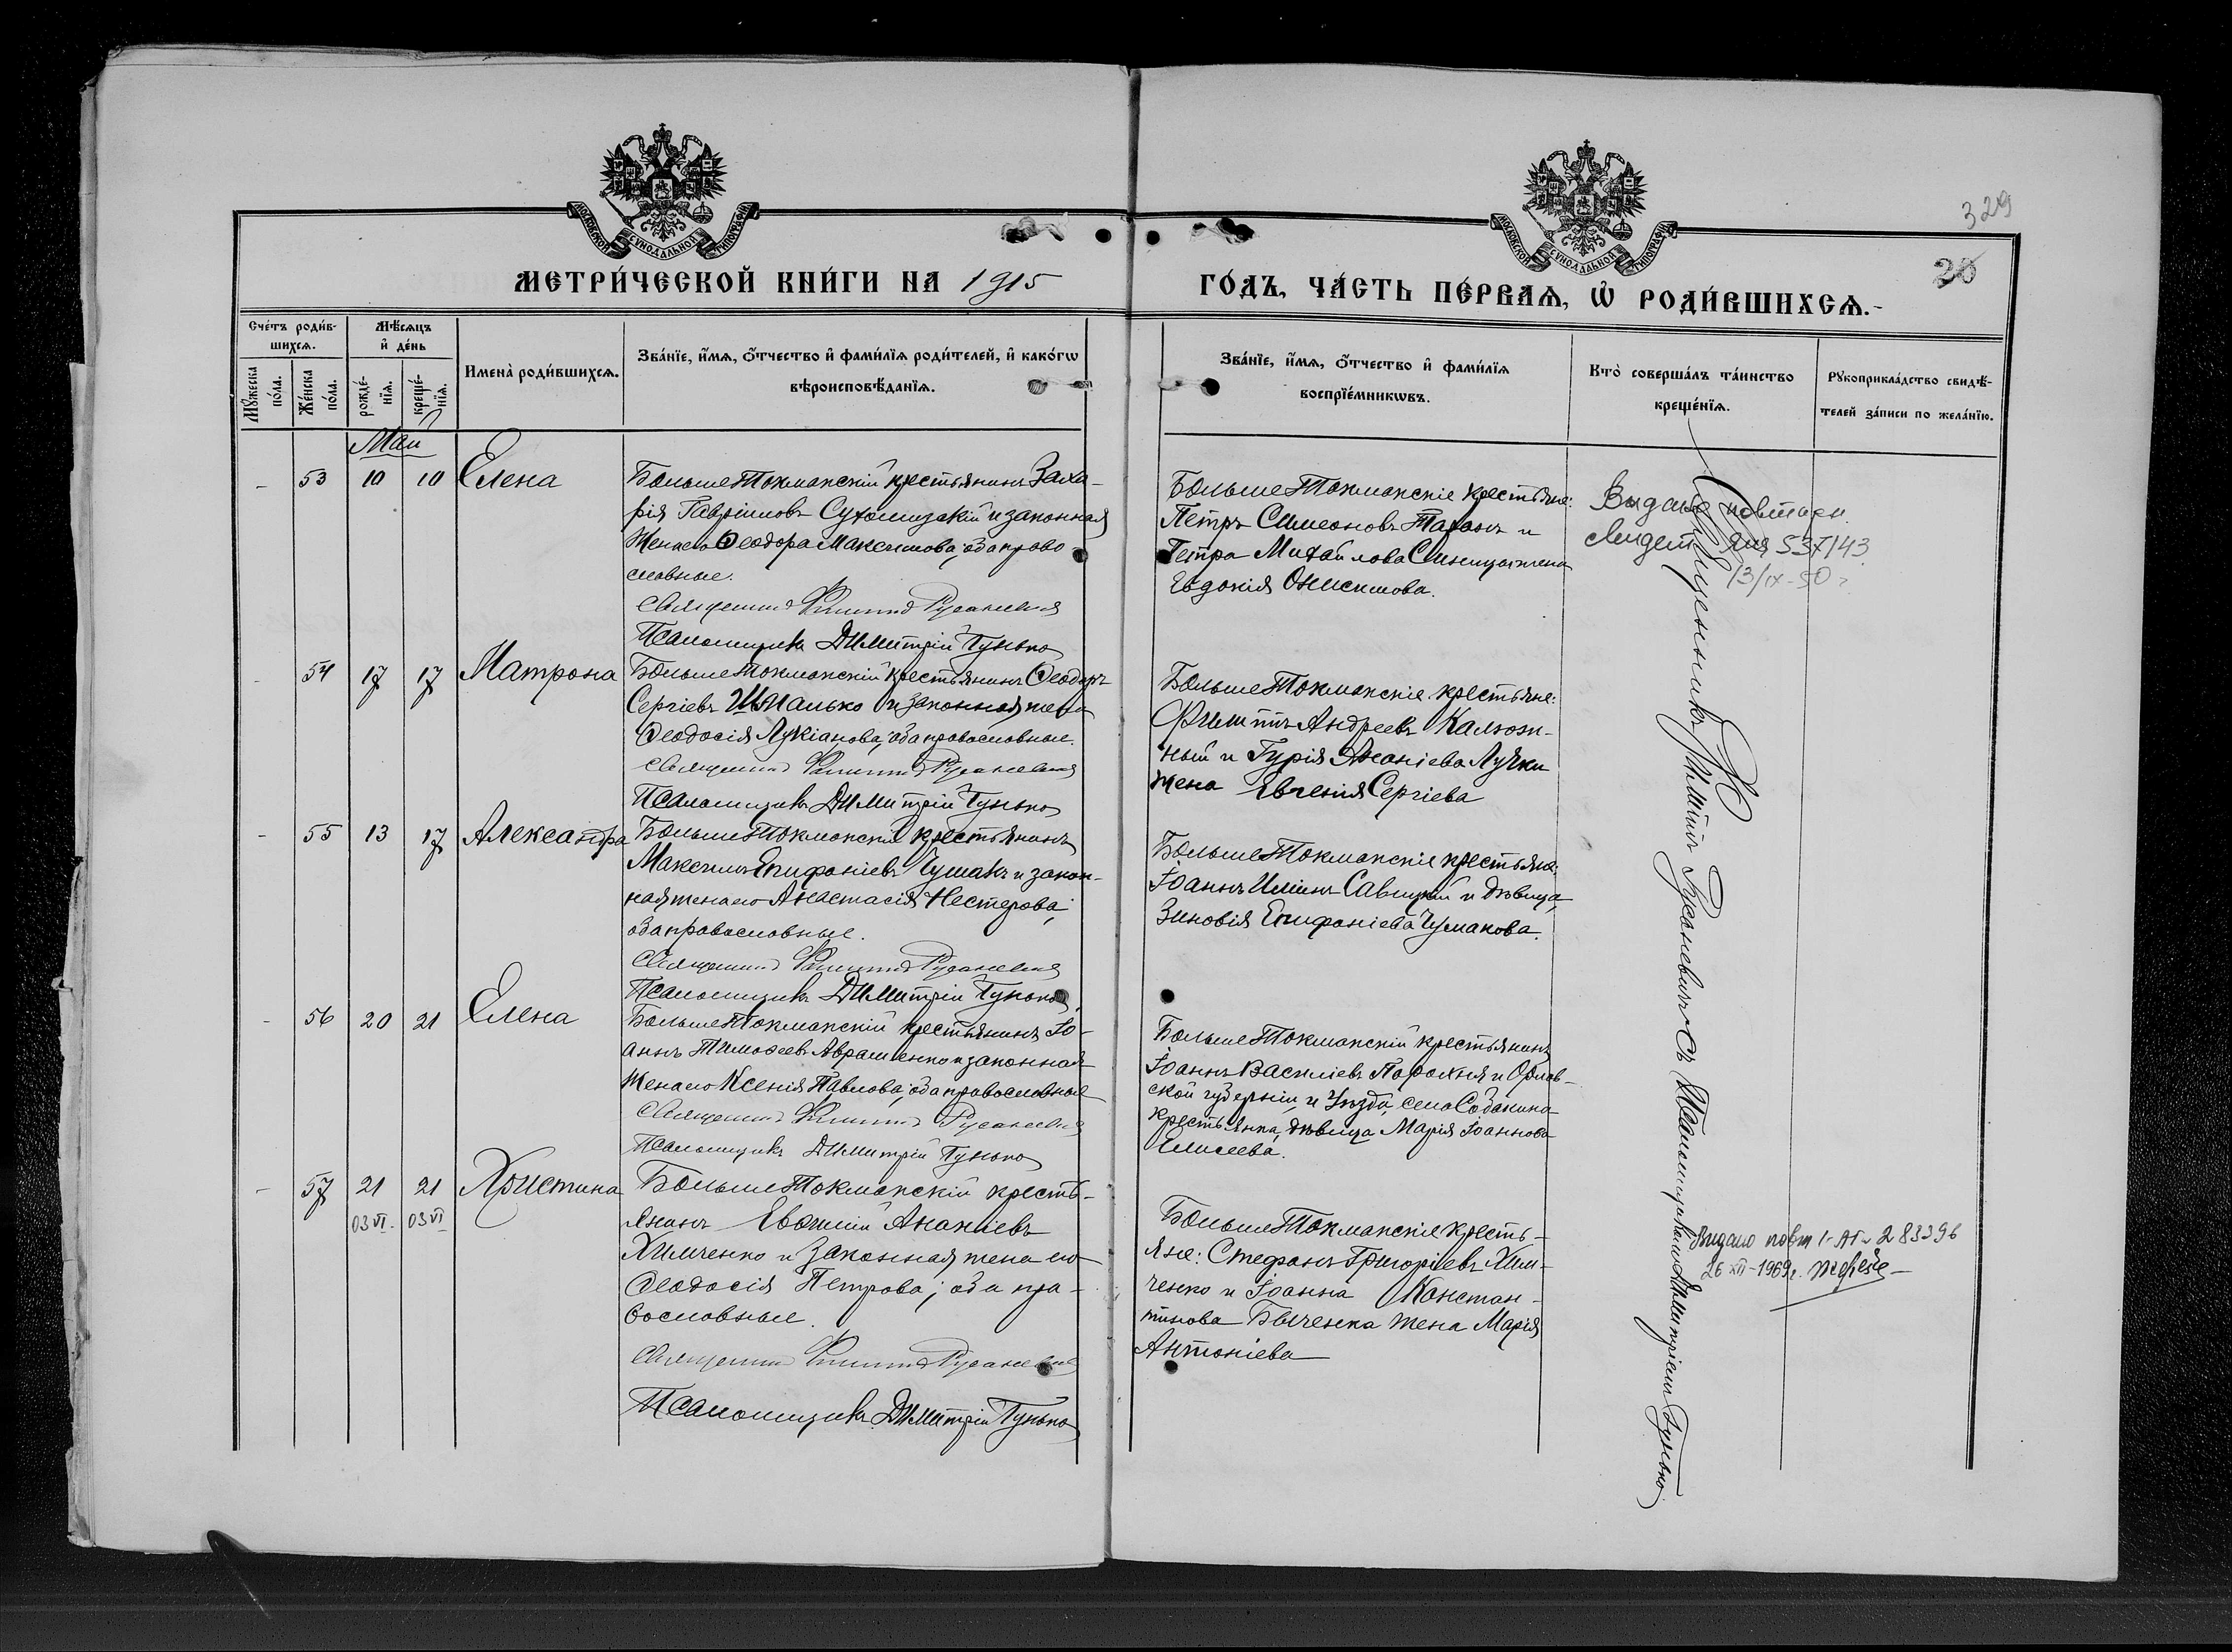 МОСКОВСКОЙ СѴНОДАЛЬНОЙ ТИПОГРАФІИ
МОСКОВСКОЙ СѴНОДАЛЬНОЙ ТИПОГРАФІИ
329
20
МЕТРИ́ЧЕСКОЙ КНИ́ГИ НА 1915
ГО́ДЪ, ЧА́СТЬ ПЕ́РВАѦ, Ѡ҆ РОДИ́ВШИХСѦ.
Сче́тъ роди́в-
шихсѧ.
Мꙋ́жеска
по́ла.
Же́нска
по́ла.
Мѣ́сѧцъ
и҆ де́нь
рожде́-
нїѧ.
креще́-
нїѧ.
Имена̀ роди́вшихсѧ.
Зва́нїе, и҆́мѧ, ѻ҆́тчество и҆ фами́лїѧ роди́телей, и҆ како́гѡ
вѣроисповѣ́данїѧ.
Зва́нїе, и҆́мѧ, ѻ҆́тчество и҆ фами́лїѧ
воспрїе́мникѡвъ.
Кто̀ соверша́лъ та́инство
креще́нїѧ.
Рꙋкоприкла́дство свидѣ́-
телей за́писи по жела́нїю.
Май
- 53 10 10 Елена
БольшеТокмакскій крестьянинъ Заха-
рія Гавріиловъ и законная
жена его Ѳеодора Максимова, оба право
славные.
Священникъ Филиппъ Русаневичъ
Псаломщикъ Димитрій Гунько
БольшеТокмакскіе крестьяне:
Петръ Симеоновъ Таранъ и
Петра Михайлова Синицы жена
Евдокія Онисимова.
Выдано повторн.
537143
13/IX-50 г.
- 54 17 17 Матрона
БольшеТокмакскій крестьянинъ Ѳеодоръ
Сергіевъ Шмалько и законная жена
Ѳеодосія Лукіанова, оба православные.
Священникъ Филиппъ Русаневичъ
Псаломщикъ Димитрій Гунько
БольшеТокмакскіе крестьяне:
Филиппъ Андреевъ Калюж-
ный и Гурія Ананіева Лучки
жена Евгенія Сергіева
- 55 13 17 Александра
БольшеТокмакскій крестьянинъ
Максимъ Епифаніевъ Чумакъ и закон-
ная жена его Анастасія Нестерова,
оба православные.
Священникъ Филиппъ Русаневичъ
Псаломщикъ Димитрій Гунько
БольшеТокмакскіе крестьяне:
Іоаннъ Иліинъ Савицкій и дѣвица
Зиновія Епифаніева Чумакова.
- 56 20 21 Елена
БольшеТокмакскій крестьянинъ Іо-
аннъ Тимоѳеевъ Авраменко и законная
жена его Ксенія Павлова, оба православные
Священникъ Филиппъ Русаневичъ
Псаломщикъ Димитрій Гунько
БольшеТокмакскій крестьянинъ
Іоаннъ Василіевъ Парахня и Орлов-
ской губерніи и уѣзда, села Собакина
крестьянка, дѣвица Марія Іоаннова
Елисеева.
- 57 21 21 Христина
03 VI. 03 VI
БольшеТокмакскій кресть-
янинъ Евѳимій Ананіевъ
Химченко и законная жена его
Ѳеодосія Петрова; оба пра-
вославные.
Священникъ Филиппъ Русаневичъ
Псаломщикъ Димитрій Гунько
БольшеТокмакскіе кресть-
яне: Стефанъ Григоріевъ Хим-
ченко и Іоанна Констан-
тинова Быченка жена Марія
Антоніева
Видано повт I-АП 283396
26 XII-1969 г.
Священникъ Филиппъ Русаневичъ съ Псаломщикомъ Димитріемъ Гунько